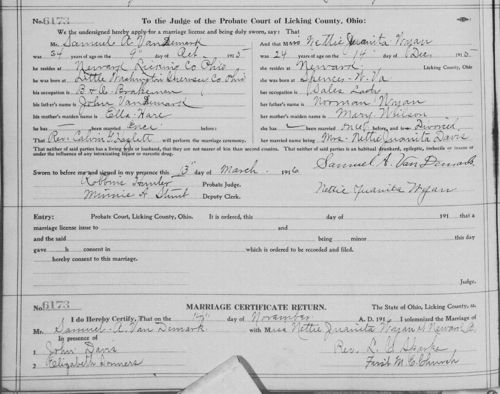 No. 6173 To the Judge of the Probate Court of Licking County, Ohio:
We the undersigned hereby apply for a marriage license and being duly sworn, say: That
Mr. Samuel A Van Demark And that Miss Nettie Juanita Wyan
was 34 years of age on the 9" day of 1915 was 24 years of age on the 14" day of Dec. 1915
he resides at Newark Licking Co Ohio she resides at Newark Licking County, Ohio
he was born at Little Washington Ohio she was born at Spencer W. Va
his occupation is B & O Brakeman her occupation is Sales Lady
his father's name is John Van Demark her father's name is Norman Wyan
his mother's maiden name is Ella Hare her mother's maiden name is Mary Wilson
he has — been married once before: she has — been married once before, and is Divorced
That Rev. Calvin will perform the ceremony. her married name being Mrs. Nettie Juanita Davis
That neither of said parties is an habitual drunkard, epileptic, imbecile or insane or
under the influence of any intoxicating liquor or narcotic drug.
Samuel A. Van Demark
Sworn to before me and signed in my presence this 13" day of March 1916
Robbins Hunter Probate Judge. Nettie Juanita Wyan
Minnie H Deputy Clerk.
Entry: Probate Court, Licking County, Ohio. It is ordered, this day of 191 that a
marriage license issue to and
and the said being minor this day
gave h consent in which is ordered to be recorded and filed.
hereby consent to this marriage.
Judge.
No. 6173 MARRIAGE CERTIFICATE RETURN. The State of Ohio, Licking County, ss.
I do Hereby Certify, That on the day of November A. D. 191 I solemnized the Marriage of
Mr. Samuel A. Van Demark with Miss Nettie Juanita Wyan of Newark O.
In presence of
1 John Davis Rev. L. C. Sparks
2 Elizabeth First M. E. Church